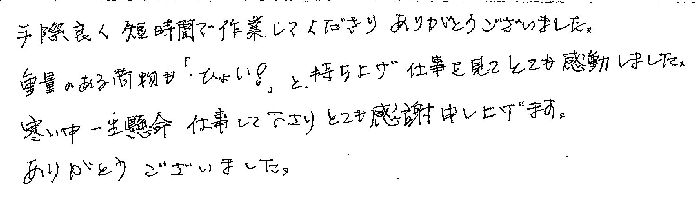 手際良く 短時間で作業してくださり ありがとうございました。
重量のある荷物も「ひょい!」と、持ち上げ 仕事を見てとても感動しました。
寒い中 一生懸命 仕事して下さりとても感謝申し上げます。
ありがとう ございました。